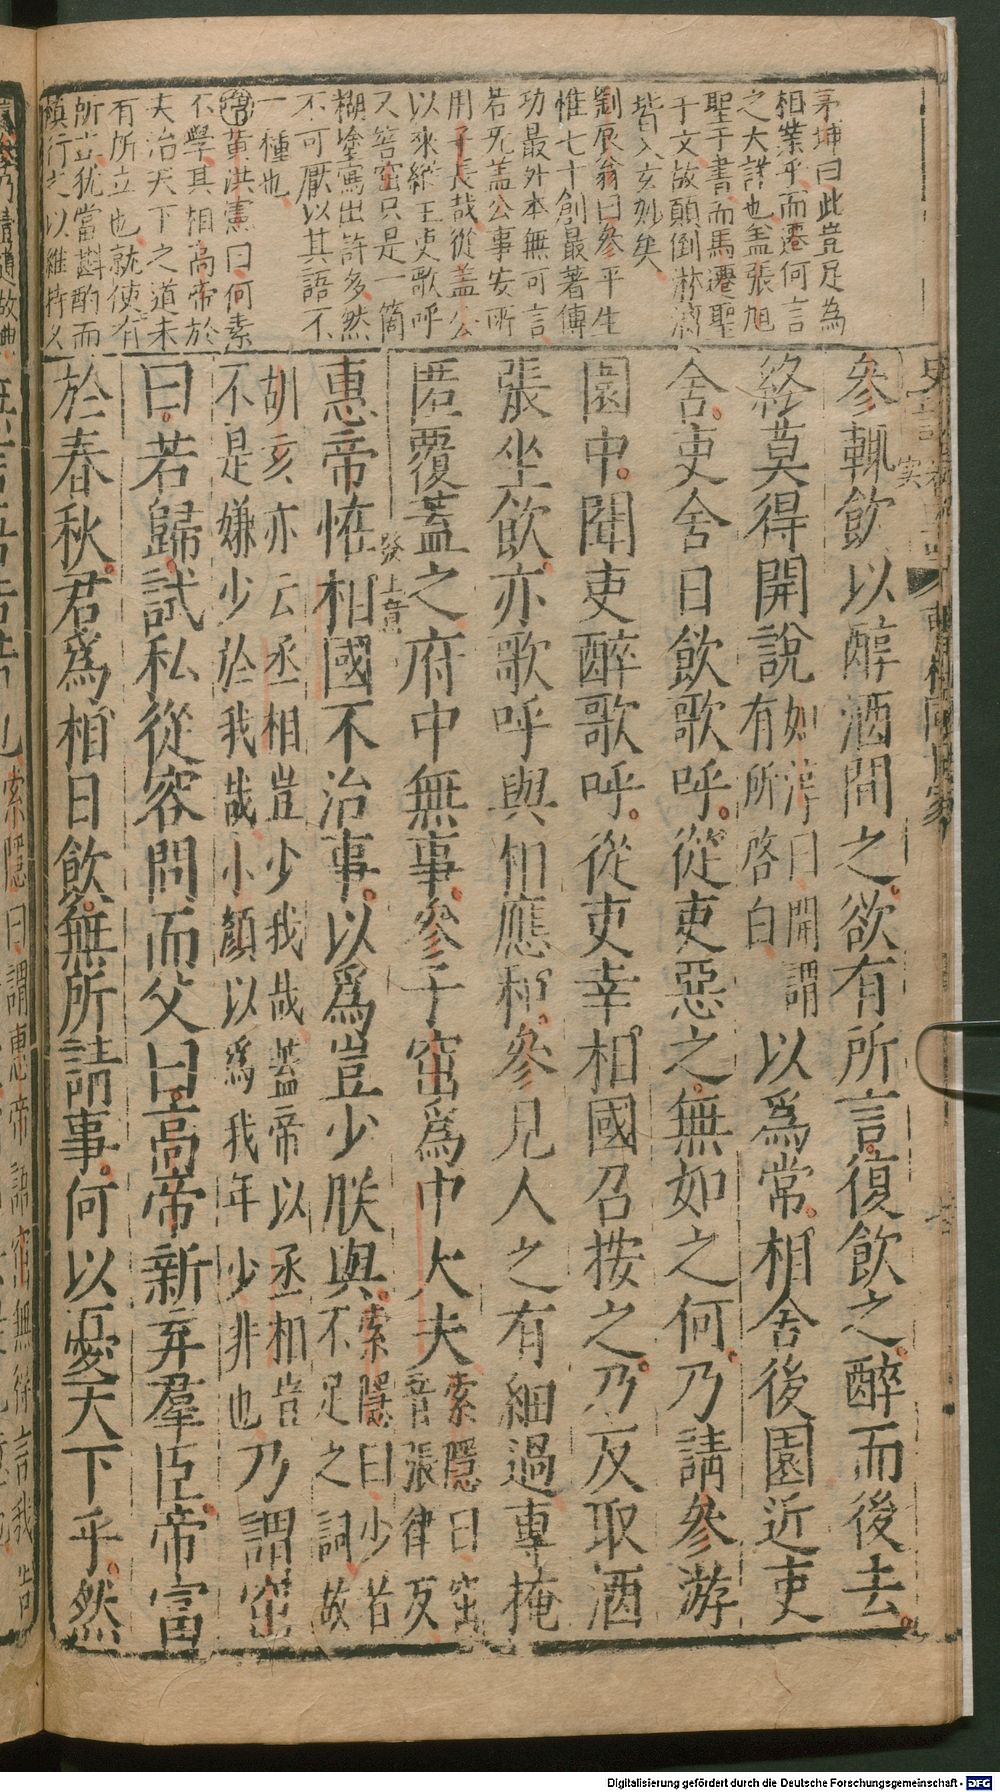 茅坤曰此豈足為
相業乎而遷何言
之大詳也盖張旭
聖于書而馬遷聖
于文故顛倒淋漓
皆入玄妙矣
劉辰翁曰參平生
惟七十創最著傳
功最外本無可言
若死盖公事安所
用子長哉從盖公
以來絕王吏歌呼
又窋只是一箇
糊塗寫出許多然
不可厭以其語不
一種也
黃洪憲曰何素
不學其相高帝於
夫治天下之道未
有所立也就使有
所立犹當斟酌而
慎行之以維持乂
參輒飲以醇酒間之欲有所言復飲之醉而後去
終莫得開說如淳曰開謂有所啓白以爲常相舍後園近吏
舍吏舍日飲歌呼從吏惡之無如之何乃請參游
園中聞吏醉歌呼從吏幸相國召按之乃反取酒
張坐飲亦歌呼與相應和參見人之有細過專掩
匿覆蓋之府中無事參子窋爲中大夫索隱曰窋音張律反
惠帝怪相國不治事以爲豈少朕與索隱曰少者不足之詞故
胡亥亦云丞相豈少我哉蓋帝以丞相豈不是嫌少於我哉小顏以爲我年少非也乃謂窋
曰若歸試私從容問而父曰高帝新弃羣臣帝富
於春秋君爲相日飲無所請事何以憂天下乎然
發上意
索隱曰謂惠帝語窋無得言我告
Digitalisierung gefördert durch die Deutsche Forschungsgemeinschaft - DFG